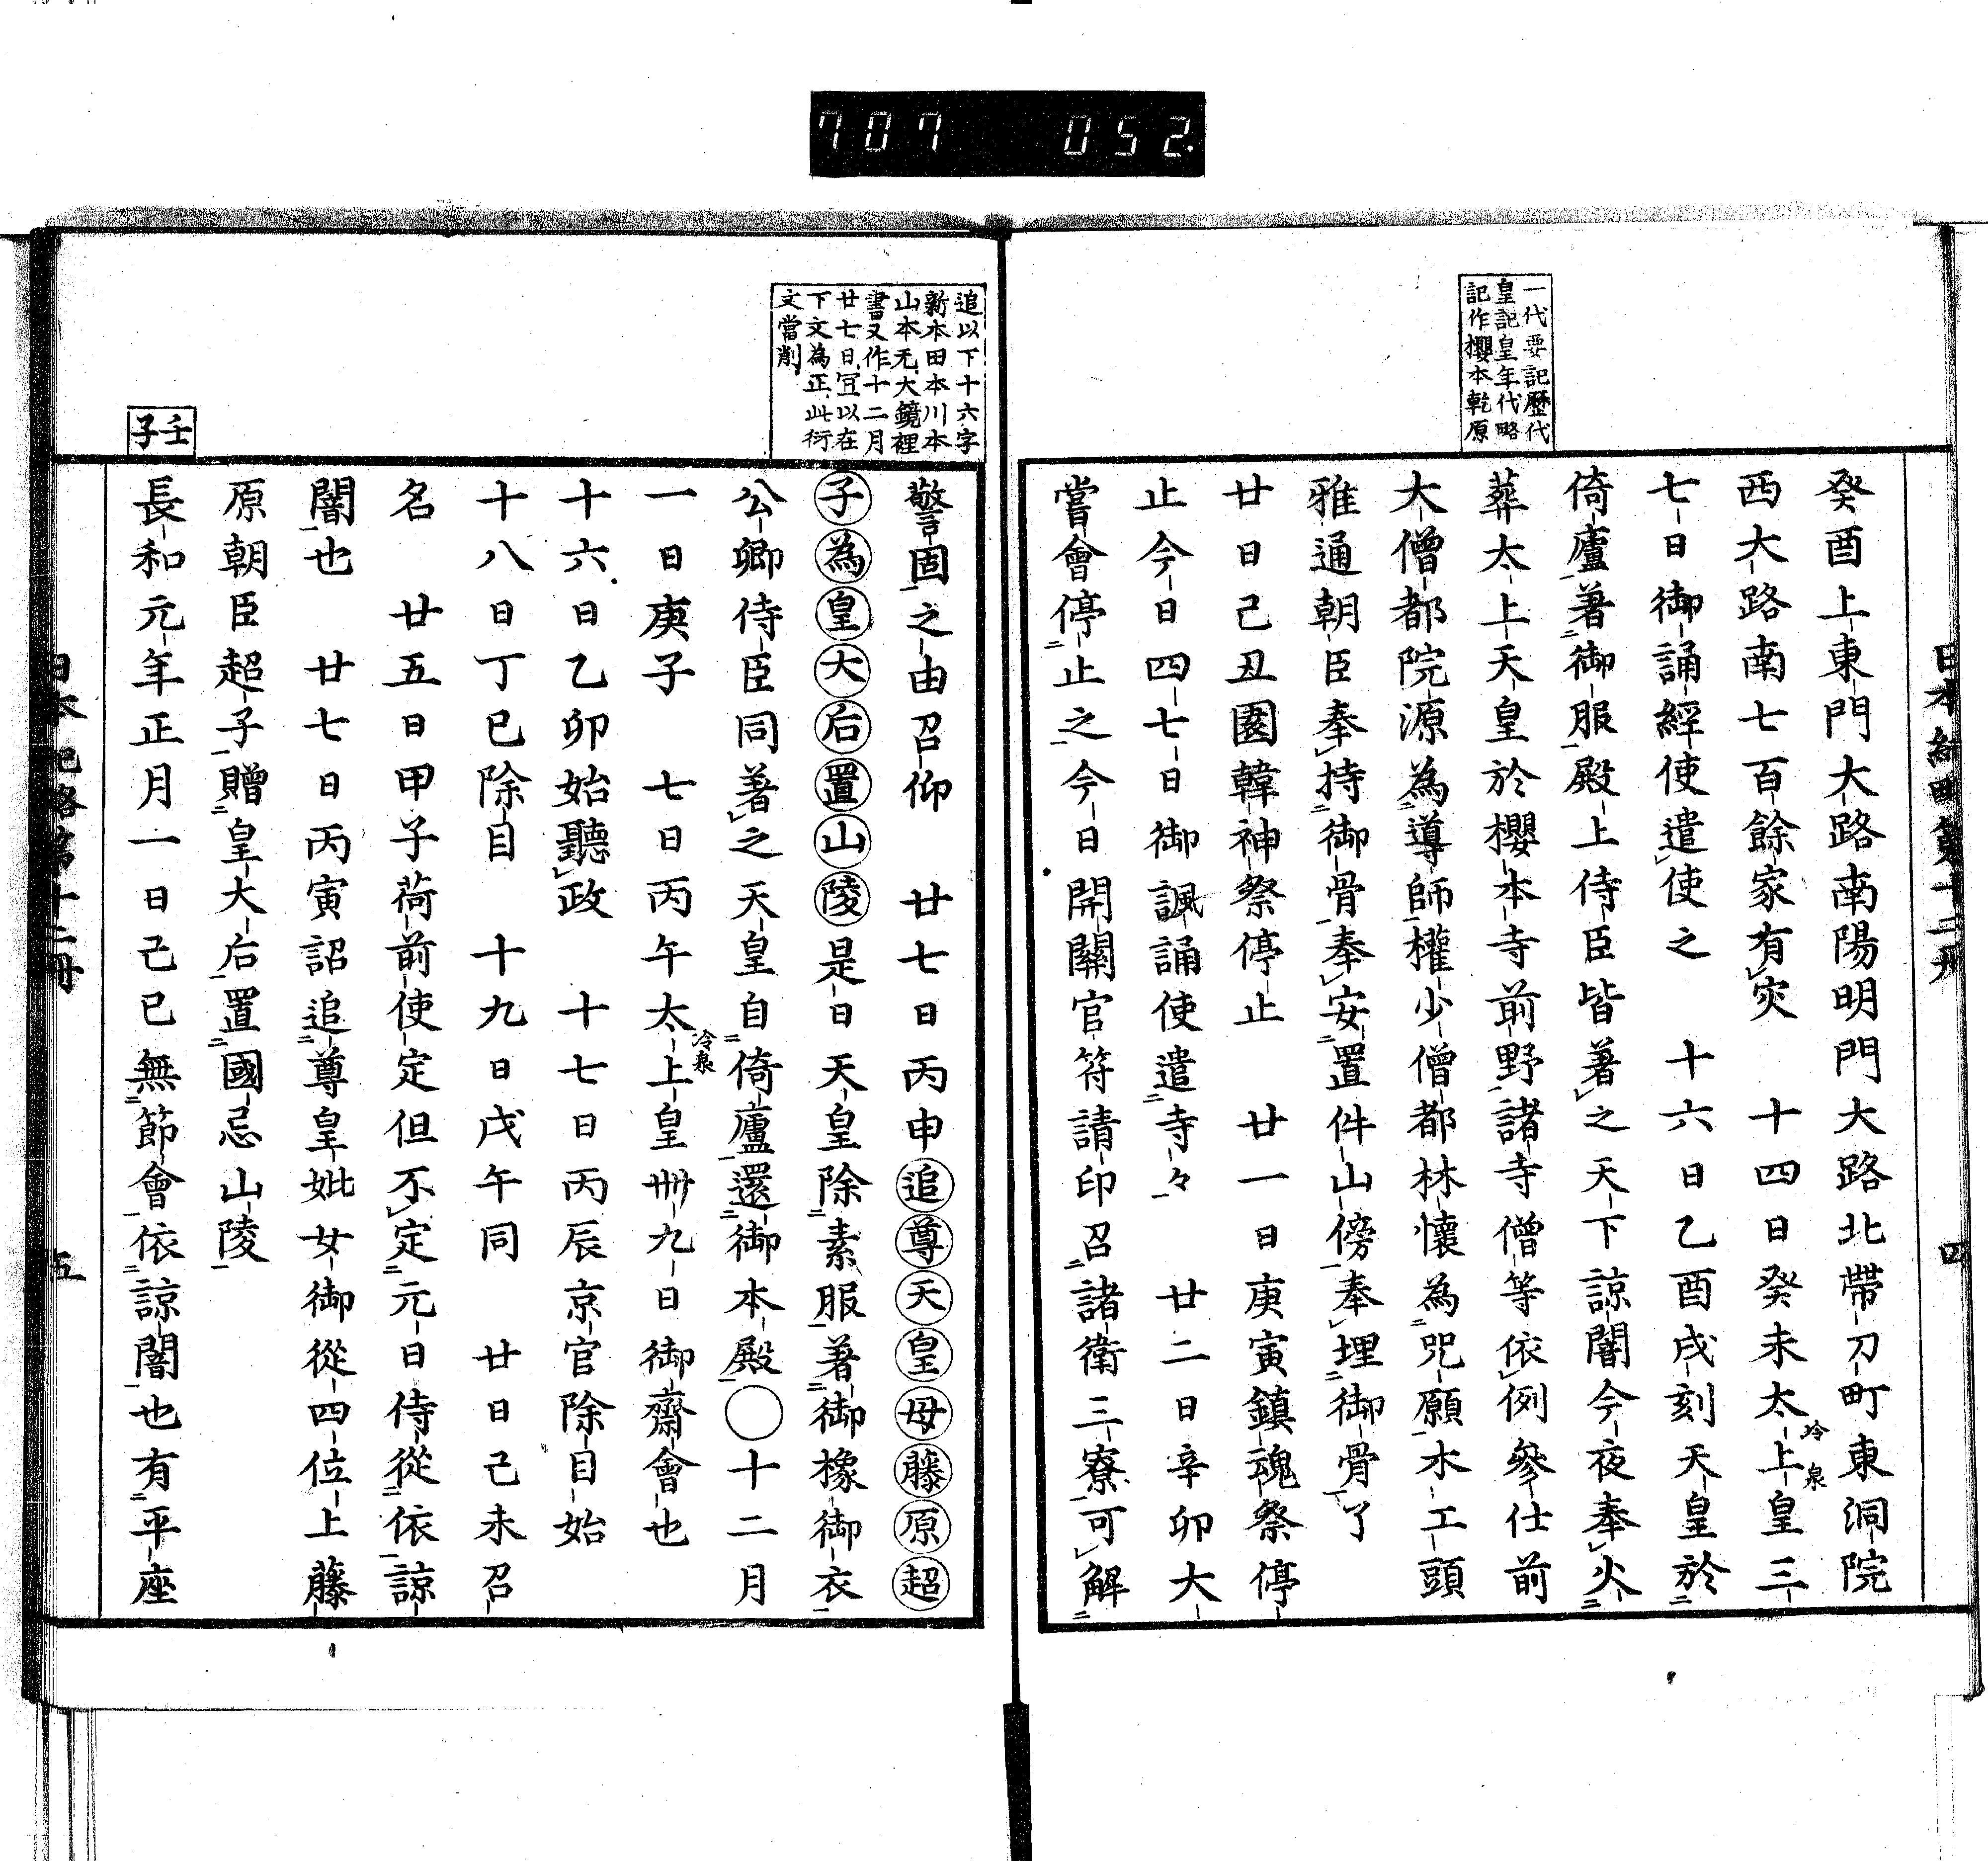 707 052
日本紀略第十二冊 四
一代要記歷代
皇記皇年代略
記作櫻本乾原
癸酉上東門大路南陽明門大路北帶刀町東洞院
西大路南七百餘家有灾 十四日癸未太上皇三冷泉
七日御誦經使遣使之 十六日乙酉戌刻天皇於
倚廬著御服殿上侍臣皆著之天下諒闇今夜奉火
葬太上天皇於櫻本寺前野諸寺僧等依例參仕前
大僧都院源為導師權少僧都林懷為咒願木工頭
雅通朝臣奉持御骨奉安置件山傍奉埋御骨了
廿日己丑園韓神祭停止 廿一日庚寅鎮魂祭停
止今日四七日御諷誦使遣寺々 廿二日辛卯大
嘗會停止之今日開關官符請印召諸衛三寮可解
追以下十六字
新本田本川本
山本无大鏡裡
書又作十二月
廿七日冝以在
下文為正此衍
文當削
警固之由召仰 廿七日丙申追尊天皇母藤原超
子為皇大后置山陵是日天皇除素服著御橡御衣
公卿侍臣同著之天皇自倚廬還御本殿〇十二月
一日庚子 七日丙午太上皇卌九日御齋會也冷泉
十六日乙卯始聽政 十七日丙辰京官除目始
十八日丁巳除目 十九日戊午同 廿日己未召
名 廿五日甲子荷前使定但不定元日侍從依諒
闇也 廿七日丙寅詔追尊皇妣女御從四位上藤
原朝臣超子贈皇大后置國忌山陵
壬子
長和元年正月一日己巳無節會依諒闇也有平座
日本紀略第十二冊 五